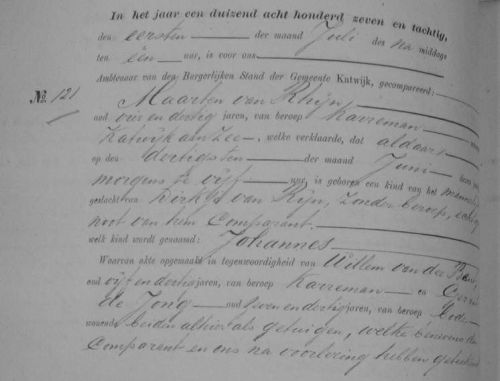 In het jaar een duizend acht honderd zeven en tachtig,
den eersten der maand Juli des na middags
ten één uur, is voor ons
Ambtenaar van den Burgerlijken Stand der Gemeente Katwijk, gecompareerd:
No. 121 Maarten van Rhijn
oud en dertig jaren, van beroep Karreman
Katwijk aan Zee, welke verklaarde, dat aldaar
op den dertigsten der maand Juni
morgens te vijf uur, is geboren een kind van het
geslacht van van Rijn, zonder beroep,
noot van hem Comparant.
welk kind wordt genaamd: Johannes
Waarvan akte opgemaakt in tegenwoordigheid van Willem van der
oud vijf en dertig jaren, van beroep Karreman en
de Jong oud zeven en dertig jaren, van beroep
wonende beiden alhier als getuigen, welke benevens den
Comparant en ons na voorlezing hebben geteekend